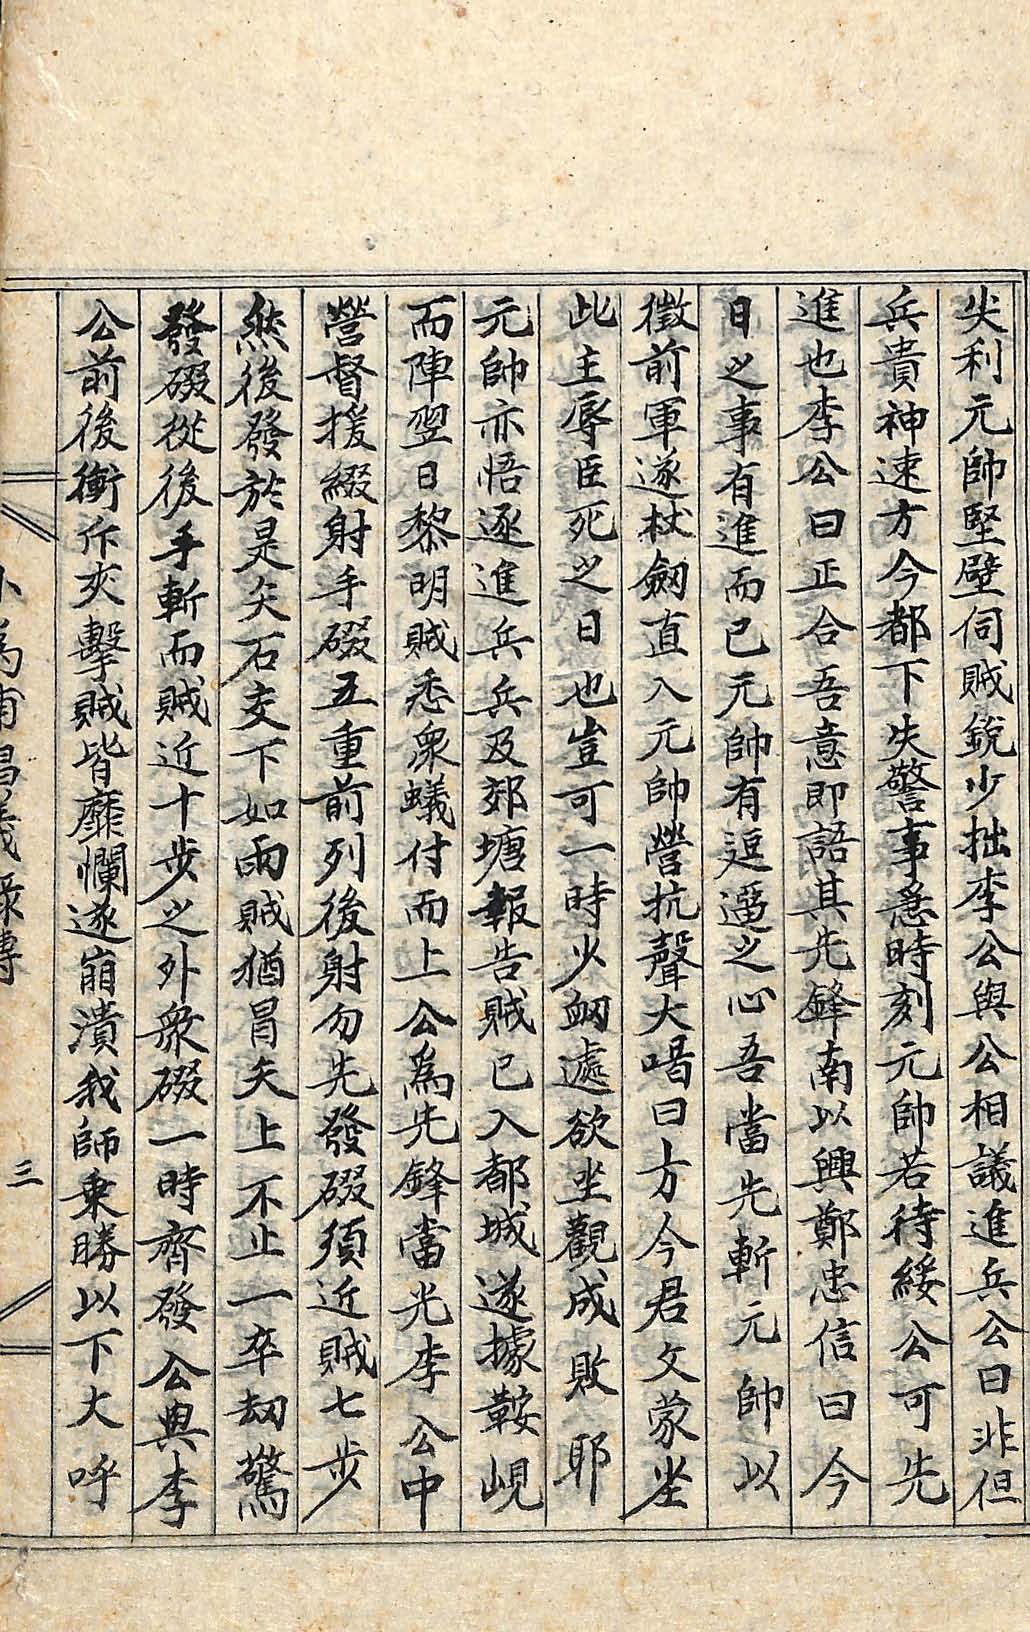 失利元帥堅壁伺賊銳少拙李公與公相議進兵公曰非但
兵貴神速方今都下失警事急時刻元帥若待綏公可先
進也李公曰正合吾意即語其先鋒南以興鄭忠信曰今
日之事有進而已元帥有逗遛之心吾當先斬元帥以
徵前軍遂杖劒直入元帥營抗聲大喝曰方今君父蒙坐
此主辱臣死之日也豈可一時少衂處欲坐觀成敗耶
元帥亦悟逐進兵兵及郊塘報告賊已入都城遂據鞍峴
而陣翌日黎明賊悉衆蟻付而上公爲先鋒當先李公中
營督援綴射手礟五重前列後射勿先發礟須近賊七步
然後發於是矢石交下如雨賊猶冒矢上不止一卒刼驚
發礟從後手斬而賊近十步之外衆礟一時齊發公與李
公前後衝斥夾擊賊皆靡爛遂崩潰我師乗勝以下大呼
三